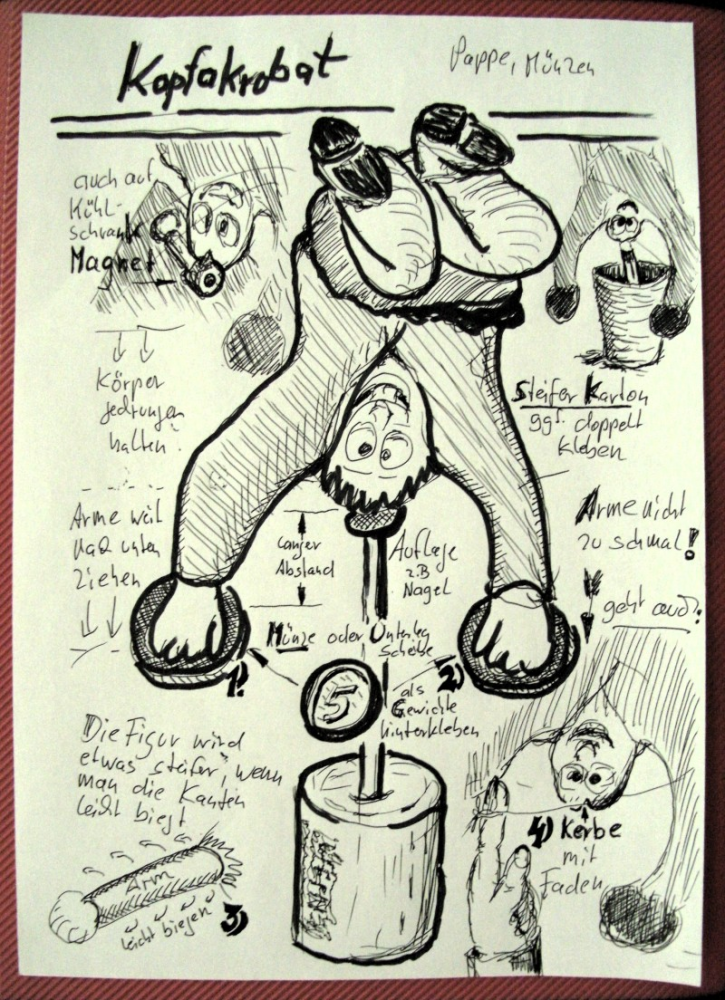 Kopfakrobat
Pappe, Münzen
auch auf
Kühl-
schrank
Magnet
Körper
gedrungen
halten!
Steifer Karton
ggf. doppelt
kleben
Arme weit
nach unten
ziehen
langer
Abstand
Auflage
z.B
Nagel
Arme nicht
zu schmal!
geht auch:
Münze oder Unterleg
Scheibe
1)
2)
5
als
Gewichte
hinterkleben
Die Figur wird
etwas steifer, wenn
man die Kanten
leicht biegt
Arm
leicht biegen
3)
4) Kerbe
mit
Faden